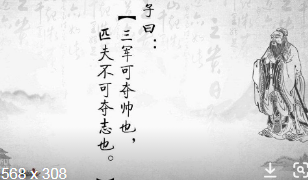 子曰：
【三军可夺帅也，
匹夫不可夺志也。
568 x 308